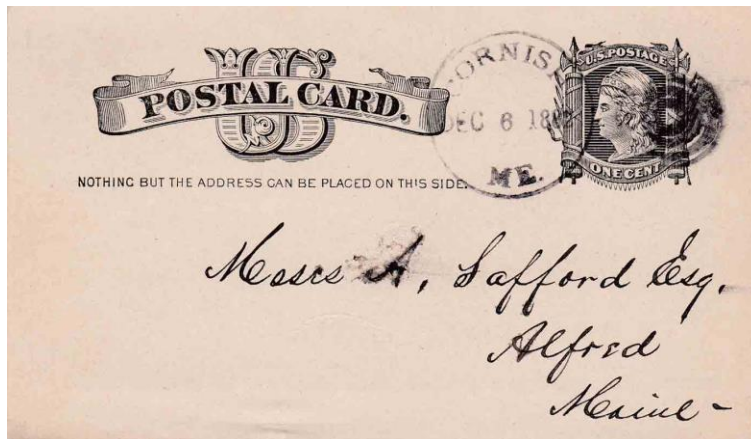 US
POSTAL CARD.
NOTHING BUT THE ADDRESS CAN BE PLACED ON THIS SIDE.
CORNISH
DEC 6
ME.
U.S. POSTAGE
ONE CENT
Moses A, Safford Esq.
Alfred
Maine -